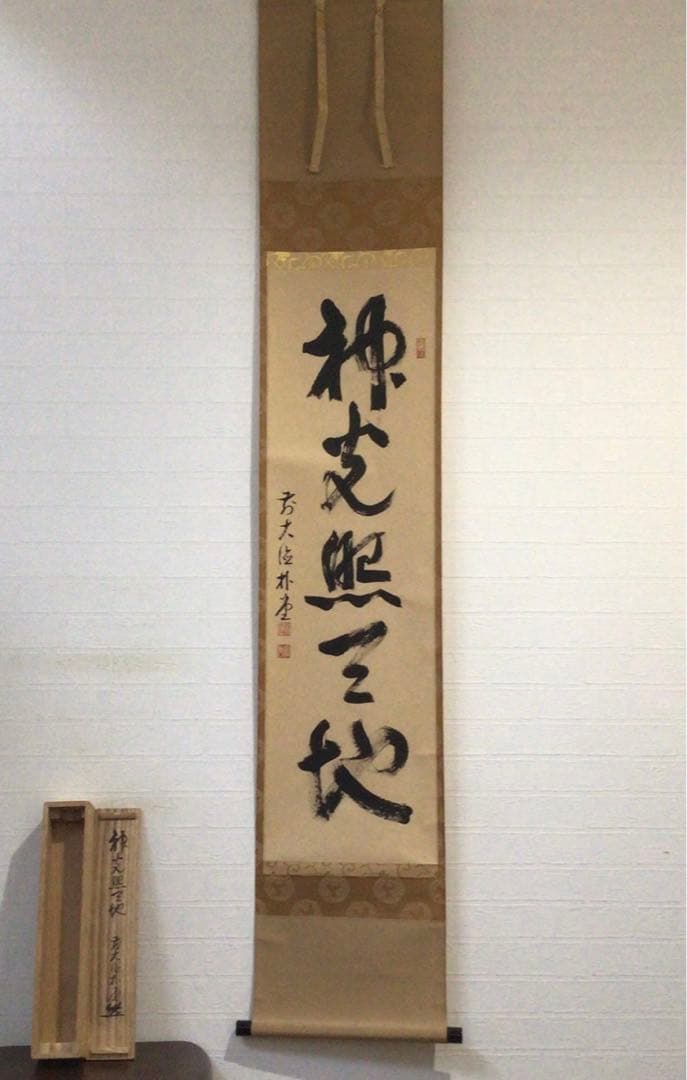 神光照天地
前大徳朴堂
神光照天地
前大徳朴堂